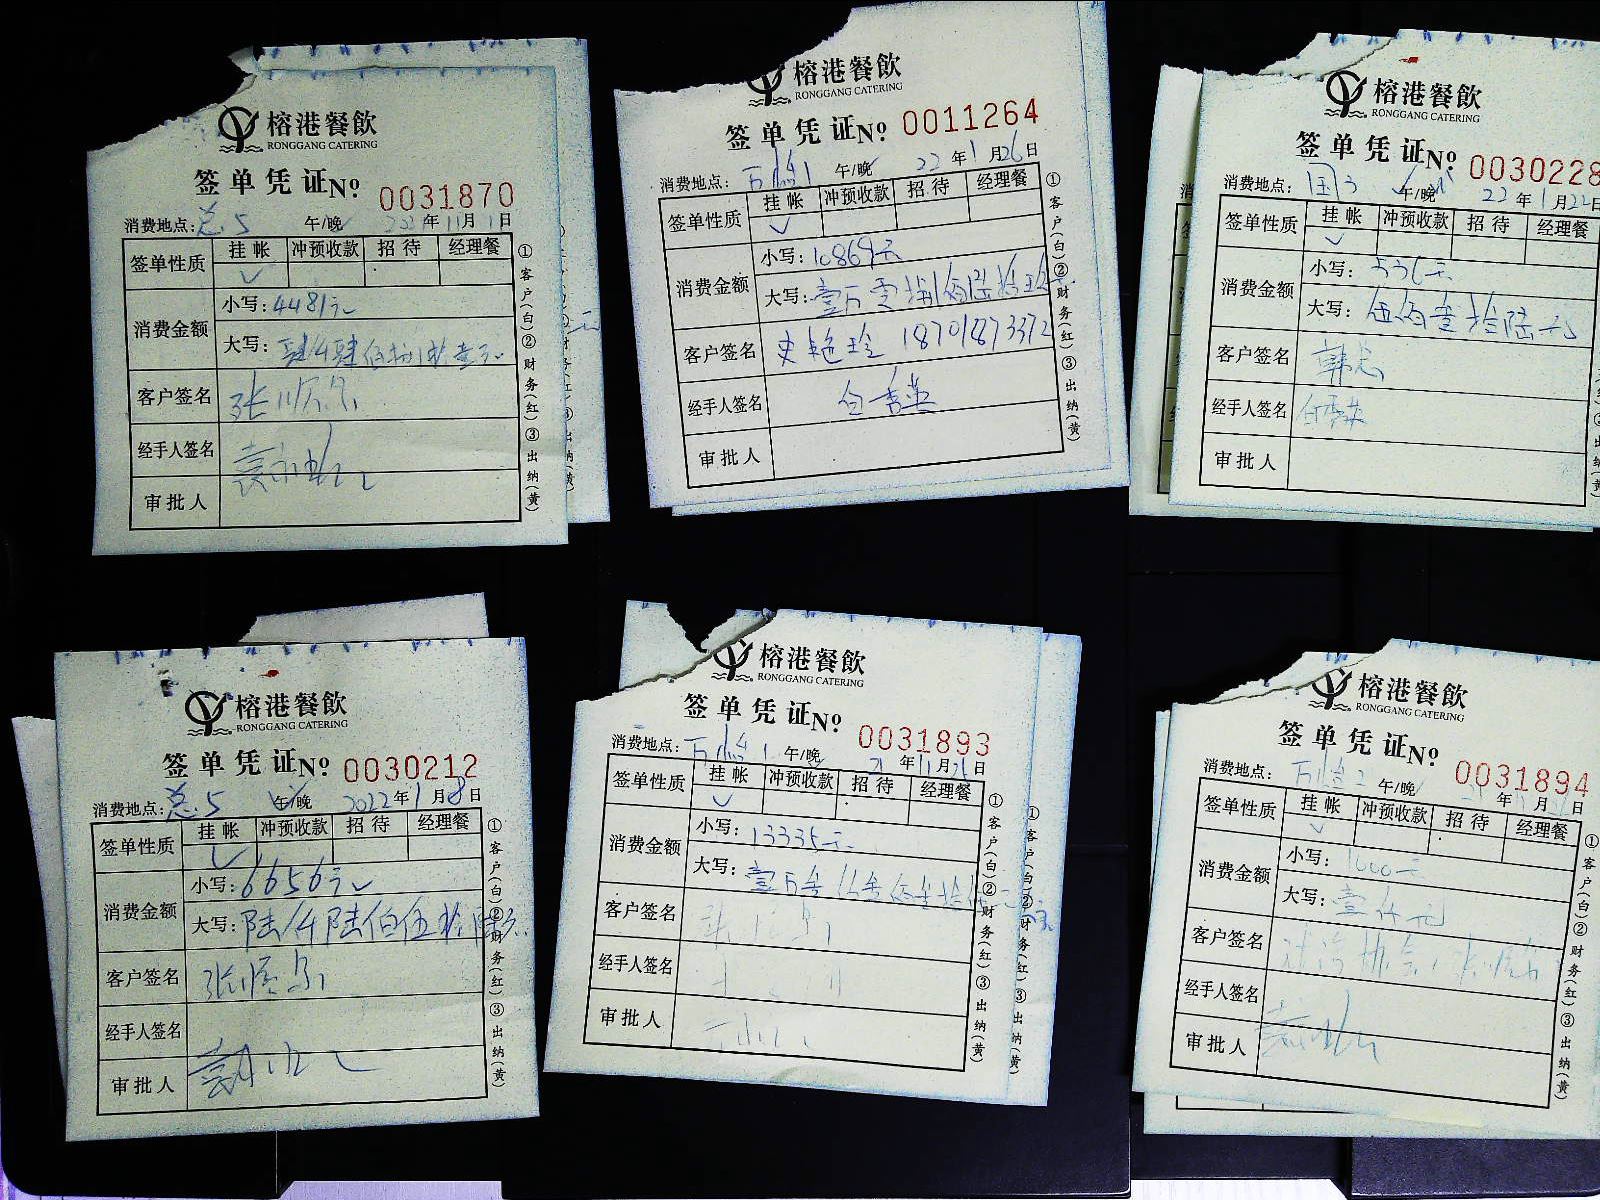 榕港餐飲
RONGGANG CATERING
签单凭证 № 0031870
消费地点: 总5 午/晚 年11月1日
签单性质 挂帐 冲预收款 招待 经理餐
消费金额
小写: 4481元
大写: 肆仟肆佰捌拾壹元
客户签名
经手人签名
审批人
①客户(白)②财务(红)③出纳(黄)
榕港餐飲
RONGGANG CATERING
签单凭证 № 0011264
消费地点: 午/晚 22年1月26日
签单性质 挂帐 冲预收款 招待 经理餐
消费金额
小写: 10869元
大写: 壹万零捌佰陆拾玖
客户签名 史艳玲 18701873372
经手人签名
审批人
①客户(白)②财务(红)③出纳(黄)
榕港餐飲
RONGGANG CATERING
签单凭证 № 0030228
消费地点: 午/晚 22年1月22日
签单性质 挂帐 冲预收款 招待 经理餐
消费金额
小写:
大写: 伍佰壹拾陆元
客户签名
经手人签名
审批人
榕港餐飲
RONGGANG CATERING
签单凭证 № 0030212
消费地点: 总5 午/晚 2022年1月8日
签单性质 挂帐 冲预收款 招待 经理餐
消费金额
小写: 6656元
大写: 陆仟陆佰伍拾陆元
客户签名
经手人签名
审批人
①客户(白)②财务(红)③出纳(黄)
榕港餐飲
RONGGANG CATERING
签单凭证 № 0031893
消费地点: 午/晚 年11月26日
签单性质 挂帐 冲预收款 招待 经理餐
消费金额
小写: 13335元
大写:
客户签名
经手人签名
审批人
①客户(白)②财务(红)③出纳(黄)
榕港餐飲
RONGGANG CATERING
签单凭证 № 0031894
消费地点: 午/晚 年 月 日
签单性质 挂帐 冲预收款 招待 经理餐
消费金额
小写: 1000元
大写: 壹仟元
客户签名
经手人签名
审批人
①客户(白)②财务(红)③出纳(黄)